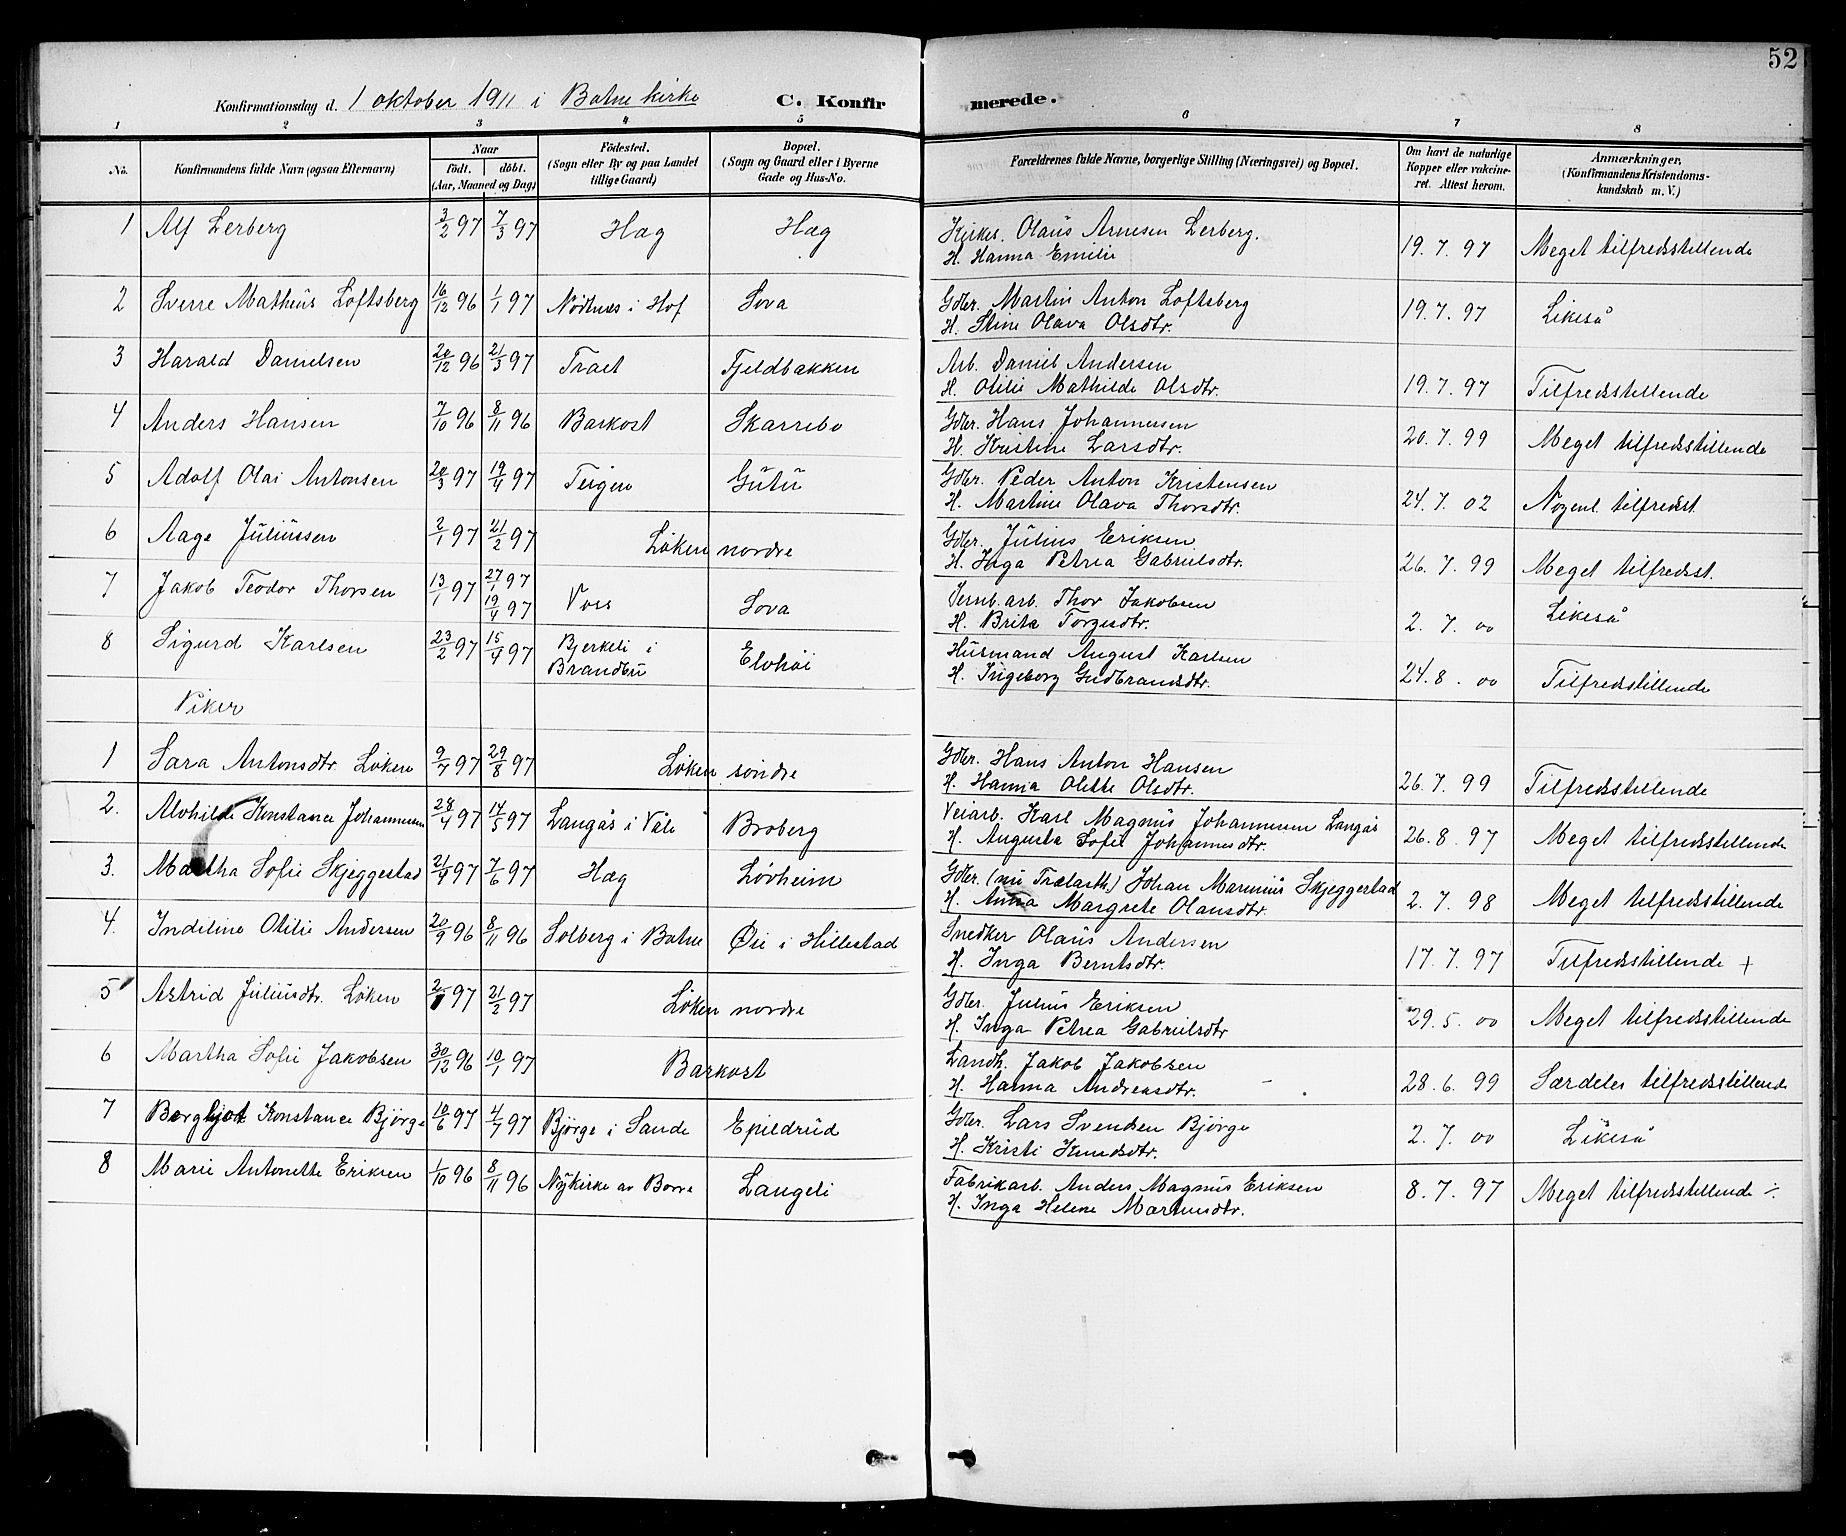 52
Konfirmationsdag d. 1 oktober 1911 i Botne kirke C. Konfirmerede.
1 2 3 4 5 6 7 8
No. Konfirmandens fulde Navn (ogsaa Efternavn) Naar födt. döbt. (Aar, Maaned og Dag) Födested. (Sogn eller By og paa Landet tillige Gaard) Bopæl. (Sogn og Gaard eller i Byerne Gade og Hus-No. Forældrenes fulde Navne, borgerlige Stilling (Næringsvei) og Bopæl. Om havt de naturlige Kopper eller vakcineret. Attest herom. Anmærkninger, (Konfirmandens Kristendomskundskab m. V.)
1 Alf Lerberg 3/2 97 7/3 97 Hæg Hæg Kirkes. Olaüs Arnesen Lerberg. 19.7.97 Meget tilfredsstillende
H. Hanna Emilie
2 Sverre Matheüs Loftsberg 16/12 96 1/1 97 Nödtnes i Hof Sova Gdbr. Martin Anton Loftsberg 19.7.97 Likeså
H. Stine Olava Olsdtr.
3 Harald Danielsen 20/12 96 21/3 97 Traet Fjeldbakken Arb. Daniel Andersen 19.7.97 Tilfredsstillende
H. Otilie Mathilde Olsdtr.
4 Anders Hansen 7/10 96 8/11 96 Barkost Skarrebo Gdbr. Hans Johannesen 20.7.99 Meget tilfredsstillende
H. Kristine Larsdtr.
5 Adolf Olai Antonsen 20/3 97 19/4 97 Teigen Gütü Gdbr. Peder Anton Kristensen 24.7.02 Nogenl. tilfredsst.
H. Martine Olava Thorsdtr.
6 Aage Juliüssen 2/1 97 21/2 97 Löken nordre Gdbr. Jülius Eriksen 26.7.99 Meget tilfredsst.
H. Inga Petrea Gabrielsdtr.
7 Jakob Teodor Thorsen 13/1 97 27/1 97 19/4 97 Voss Sova Jernb. arb. Thor Jakobsen 2.7.00 Likeså
H. Brita Torgersdtr.
8 Sigurd Karlsen 23/2 97 15/4 97 Bjerkeli i Brandbu Elvhöi Hüsmand August Karlsen 24.8.00 Tilfredsstillende
H. Ingeborg Gudbrandsdtr.
Piker
1 Sara Antonsdtr. Löken 9/7 97 29/8 97 Löken söndre Gdbr. Hans Anton Hansen 26.7.99 Tilfredsstillende
H. Hanna Olette Olsdtr.
2. Alvhilde Konstance Johannessen 28/4 97 14/5 97 Langås i Våle Broberg Veiarb. Karl Magnüs Johannesen Langås 26.8.97 Meget tilfredsstillende
H. Augusta Sofie Johannesdtr.
3. Martha Sofie Skjeggestad 21/4 97 7/6 97 Hæg Lövheim Gdbr. (nü Trælasth.) Johan Marinius Skjeggestad 2.7.98 Meget tilfredsstillende
H. Anna Margrete Olausdtr.
4. Indiline Otilie Andersen 20/9 96 8/11 96 Solberg i Botne Øie i Hillestad Snedker Olaüs Andersen 17.7.97 Tilfredsstillende +
H. Inga Berntsdtr.
5 Astrid Juliusdtr. Löken 2/1 97 21/2 97 Löken nordre Gdbr. Julius Eriksen 29.5.00 Meget tilfredsstillende
H. Inga Petrea Gabrielsdtr
6 Martha Sofie Jakobsen 30/12 96 10/1 97 Barkost Landh. Jakob Jakobsen 28.6.99 Særdeles tilfredsstillende
H. Hanna Andreasdtr.
7 Bergljot Konstance Bjørge 10/6 97 4/7 97 Björge i Sande Epildrüd Gdbr. Lars Svendsen Bjørge 2.7.00 Likeså
H. Kristi Knudsdtr.
8 Marie Antonette Eriksen 1/10 96 8/11 96 Nykirke av Borre Langeli Fabrikarb. Anders Magnüs Eriksen 8.7.97 Meget tilfredsstillende
H. Inga Helene Martinsdtr.